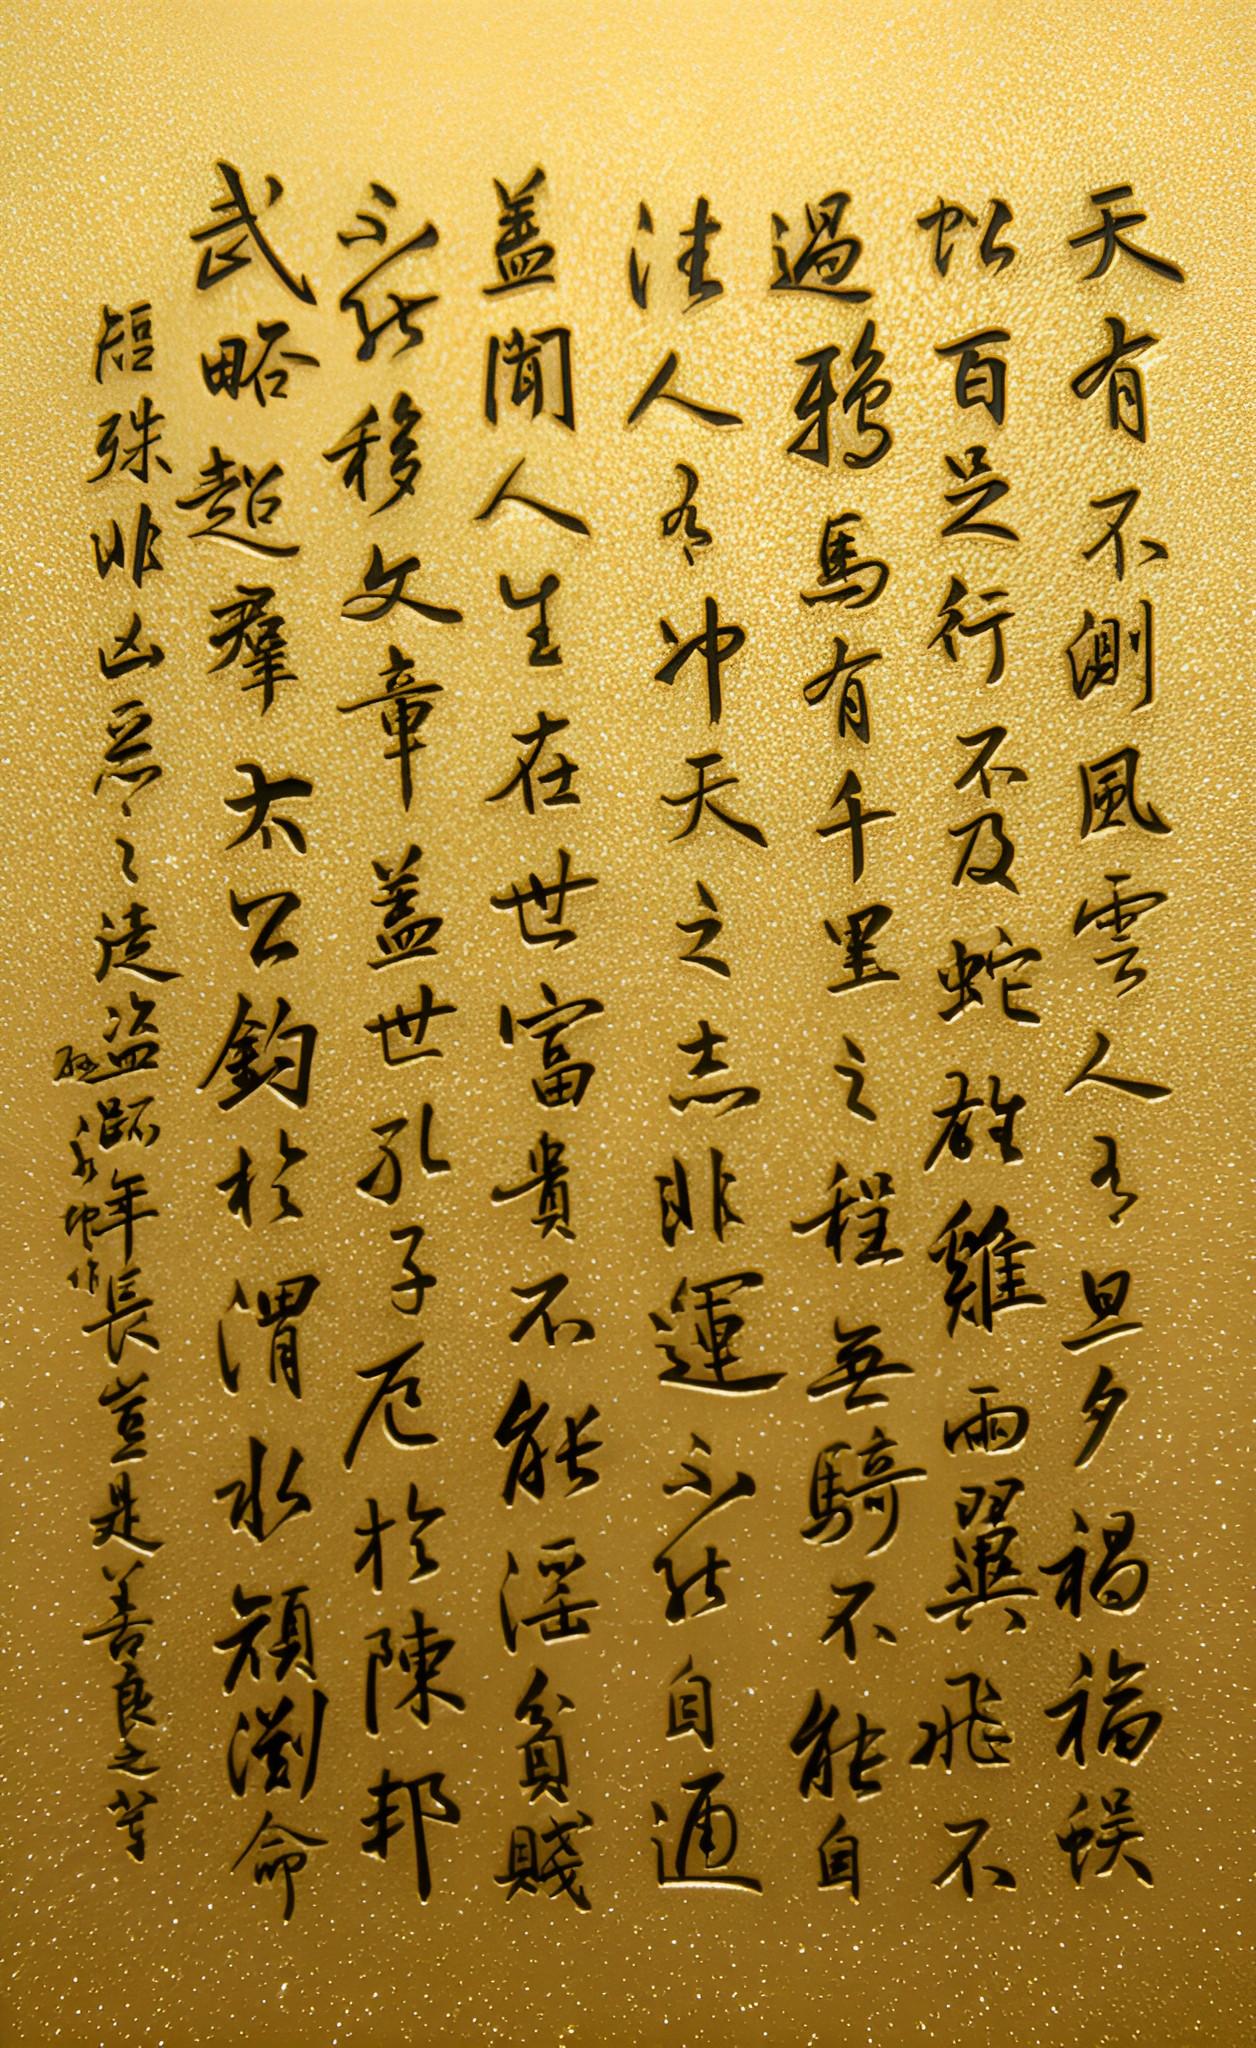 天有不測風雲人有旦夕禍福蜈
蚣百足行不及蛇雄雞兩翼飛不
過鴉馬有千里之程無騎不能自
往人有沖天之志非運不能自通
蓋聞人生在世富貴不能淫貧賤
不能移文章蓋世孔子厄於陳邦
武略超羣太公釣於渭水顏淵命
短殊非凶惡之徒盜跖年長豈是善良之輩